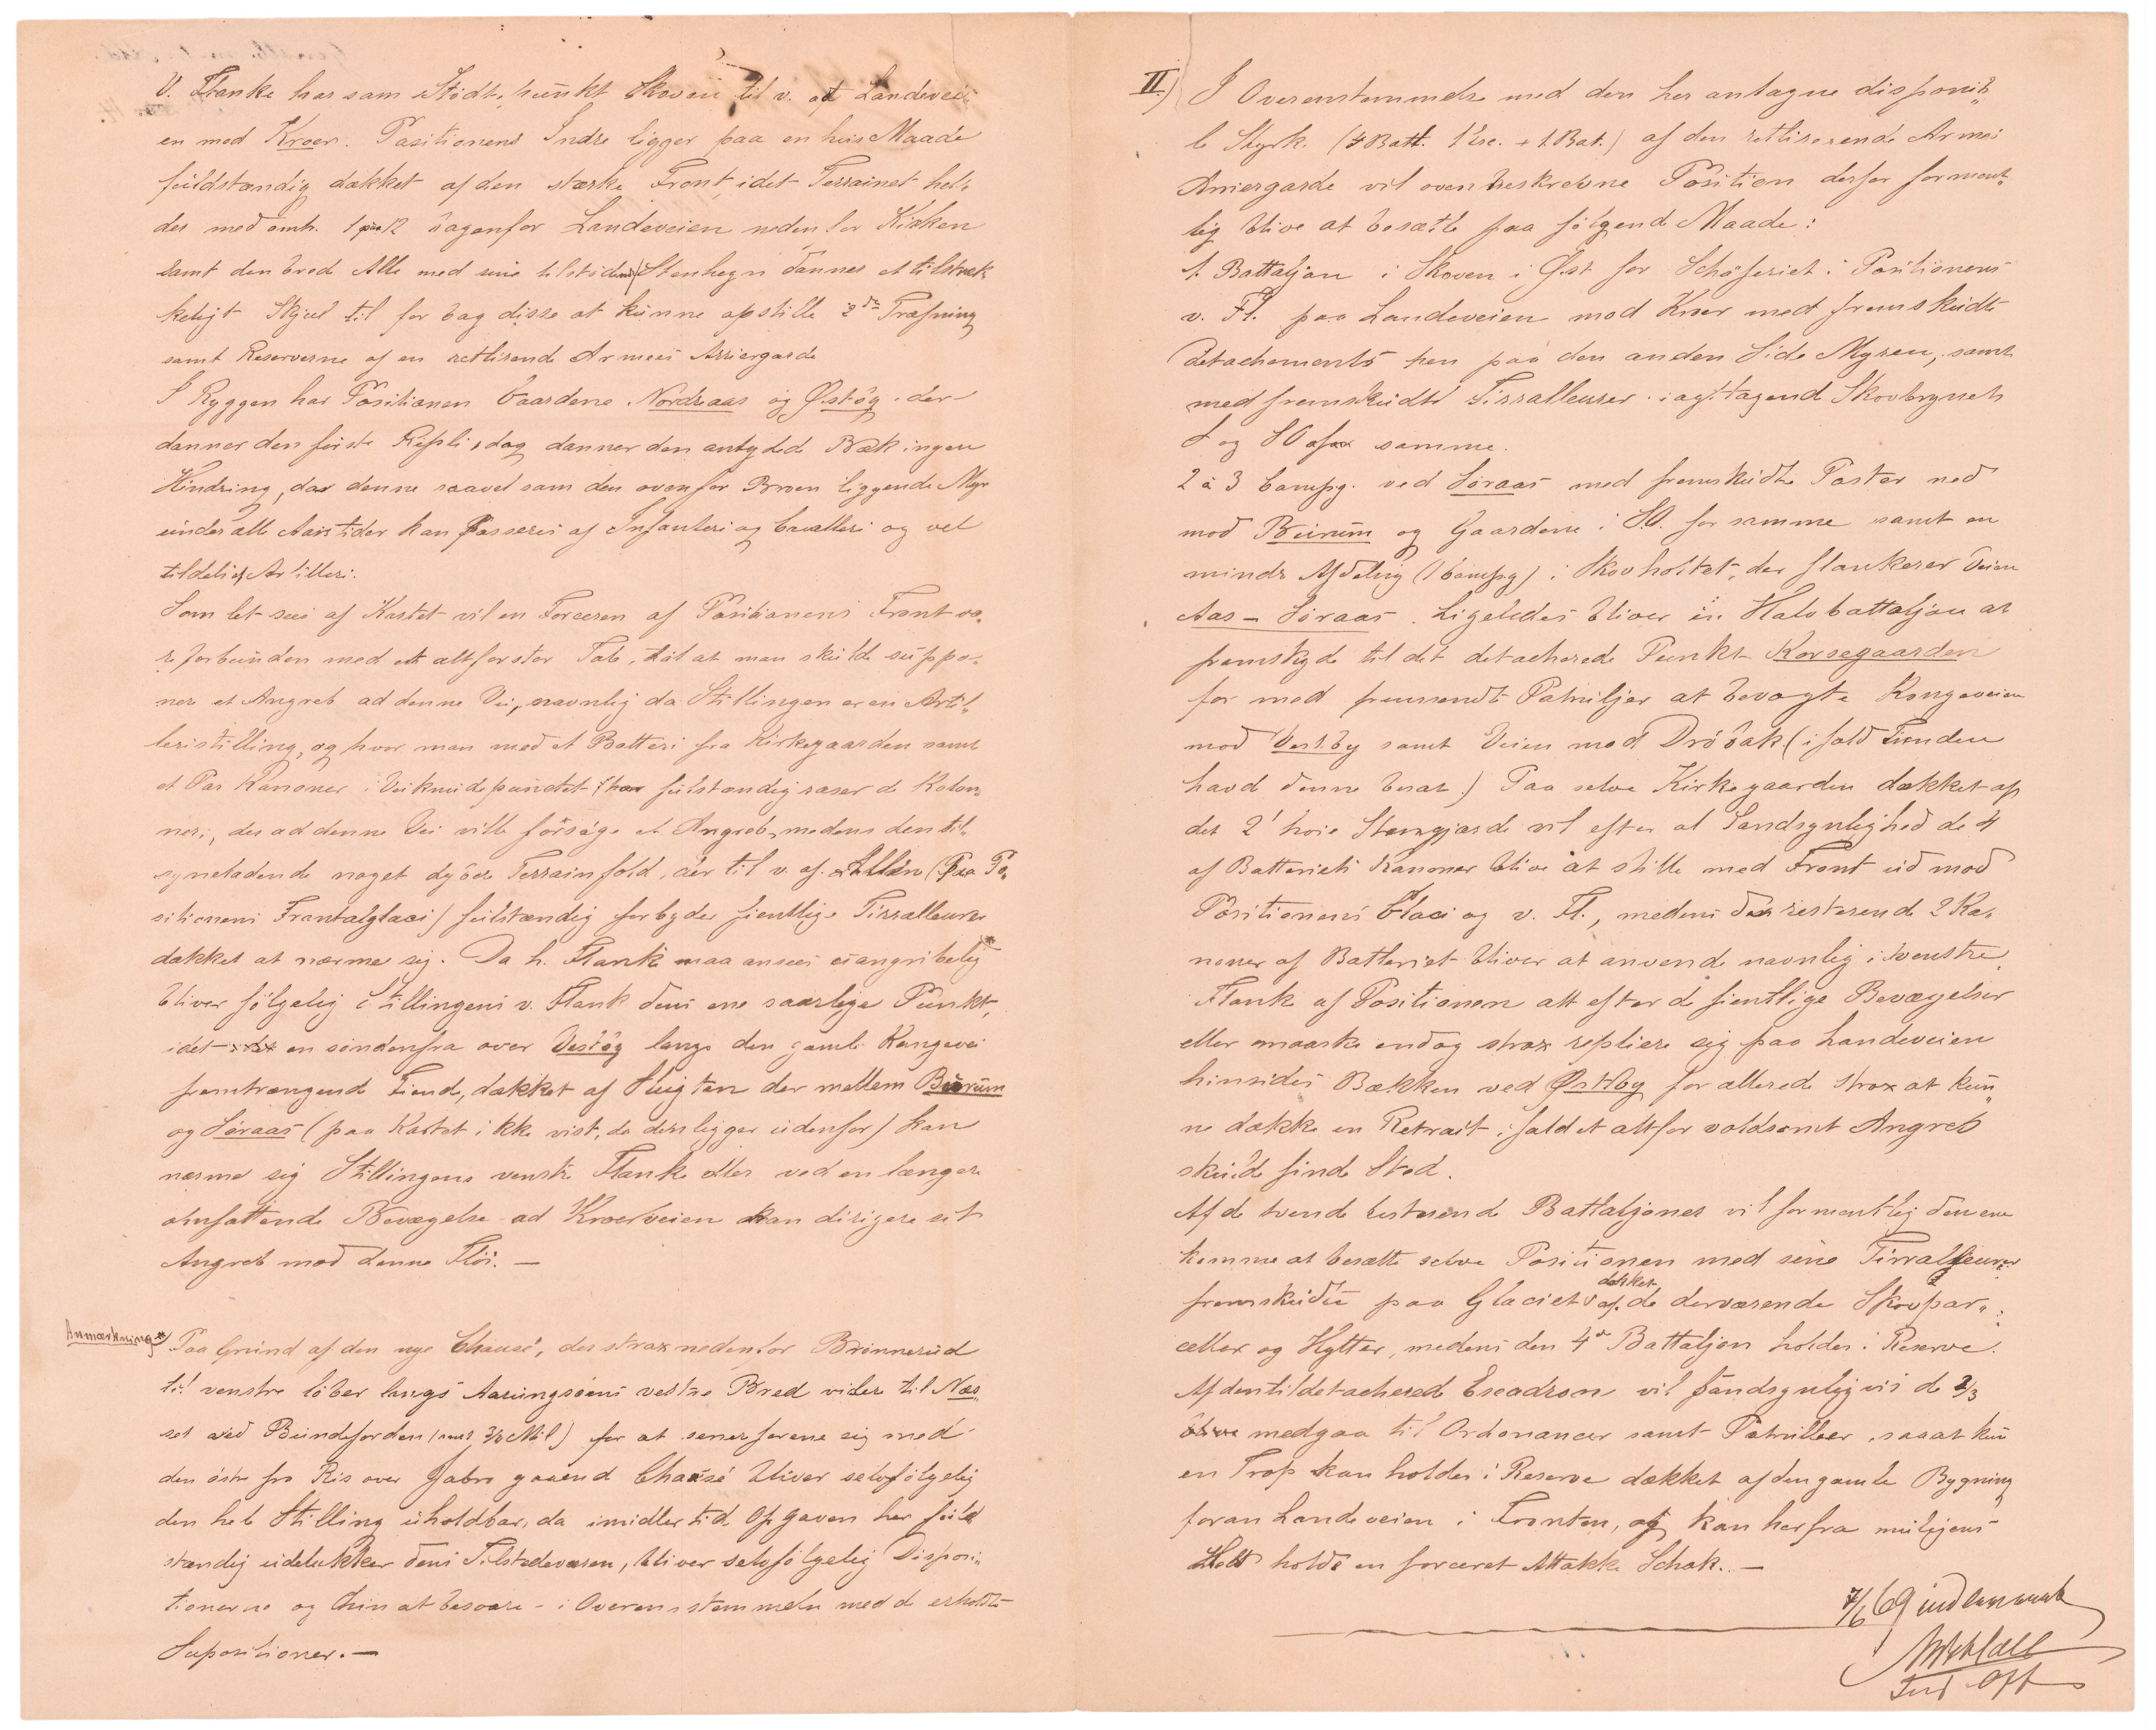 V. Flanke har som Stödtepunkt Skoven til v. af Landevei„
en mod Kroer. Positionens Indre ligger paa en heis Maade
fuldstændig dækket af den stærke Front, idet Terrainet hel„
der med omtr. 1 paa 12 bagenfor Landeveien nedenfor Kirken
samt den brede Alle med sine tilstödende Stenhegn dannes et tilstræk
keligt Skjul til for bag disse at kunne opstille 2den Træfning
samt Reserverne af en retlirende Armees Arriergarde
I Ryggen har Positionen Gaardene Nordraas og Østög, der
danner den förste Repli, dog danner den antydede Bæk ingen
Hindring, da denne saavel som den ovenfor Broen liggende Myr
under alle Aarstider kan passeres af Infanteri og Cavalleri og vel
tildels af Artilleri.
Som let sees af Kartet vil en Forceren af Positionens Front væ„
re forbunden med et altfor stor Tab, til at man skulde suppo„
nere et Angreb ad denne Vei, navnlig da Stillingen er en Artil„
leristilling, og hvor man med et Batteri fra Kirkegaarden samt
et Par Kanoner i Veiknudepunctet fuldstændig raserer de Kolon„
ner, der ad denne Vei ville forsöge et Angreb, medens den til„
syneladende noget dybere Terrainfold, der til v. af Alleen (paa Po„
sitionens Frontalglaci) fuldstændig forbyder fientlige Tirralleurer
dækket at nærme sig. Da h. Flanke maa ansees uangribelig*
bliver fölgelig Stillingens v. Flank dens ene saarlige Punkt,
idet en söndenfra over Vestög langs den gamle Kongevei
fremtrængende Fiende, dækket af Slugten der mellem Burum
og Söraas (paa Kartet ikke vist, da den ligger udenfor) kan
nærme sig Stillingens venstre Flanke eller ved en længere
omfattende Bevægelse ad Kroerveien kan dirigere sit
Angreb mod denne Flöi. —
Anmærkning* Paa Grund af den nye Chausé, der strax nedenfor Brönnerud
til venstre löber langs Aarungsöens vestre Bred videre til Næs„
set ved Bundefjorden (3/4 Mil) for at senere forene sig med
den östre fra Ris over Gaard Chausé bliver selvfölgelig
den hele Stilling uholdbar, da imidlertid Opgaven her fuld
stændig udelukker dens Tilstedeværen, bliver selvfölgelig Disposi„
tionerne og Chun at besvare i Overensstemmelse med de erholdte
Supositioner. —
II.) I Overenstemmelse med den her antagne disponib„
le Styrke (4 Batt. 1 Esc. + 1 Bat.) af den retlirerende Armees
Arriergarde vil ovenbeskrevne Position derfor forment„
lig blive at besætte paa fölgende Maade:
1. Battaljon i Skoven i Øst for Schäferiet i Positionens
v. Fl. paa Landeveien mod Kroer med fremskudte
Detachements hen paa den anden Side Myren, samt
med fremskudte Tirralleurer iagttagende Skovbrynet
S og SO for samme.
2 à 3 Compg. ved Söraas med fremskudte Poster ned
mod Burum og Gaardene i S.O. for samme samt en
mindre Afdeling (1 Compg) i Skovholtet, der flankerer Veien
Aas – Söraas. Ligeledes bliver en Halvbattaljon at
fremskyde til det detacherede Punkt Korsegaarden
for med fremsendte Patruljer at bevogte Kongeveien
mod Vestby samt Veien mod Dröbak (ifald Fienden
havde denne besat.) Paa selve Kirkegaarden dækket af
det 2' höie Stengjærde vil efter al Sandsynlighed de 4
af Batteriets Kanoner blive at stille med Front ud mod
Positionens Glaci og v. Fl., medens de resterende 2 Ka„
noner af Batteriet bliver at anvende navnlig i venstre
Flank af Positionen alt efter de fientlige Bevægelser
eller maaske endog strax repliere sig paa Landeveien
hinsides Bækken ved Østög for allerede strax at kun„
ne dække en Retrait ifald et altfor voldsomt Angreb
skulde finde Sted.
Af de tvende resterende Battaljoner vil formentlig den ene
komme at besætte selve Positionen med sine Tirralleurer
fremskudte paa Glaciet dækket af de derværende Skovpar„
celler og Hytter, medens den 4de Battaljon holdes i Reserve.
Af den tildetacherede Escadron vil sandsynligvis de 2/3
medgaa til Ordonancer samt Patruller, saaat kun
en Trop kan holdes i Reserve dækket af den gamle Bygning
foran Landeveien i Fronten, og kan herfra muligens
holde en forceret Attakke Schak. —
7/6 69